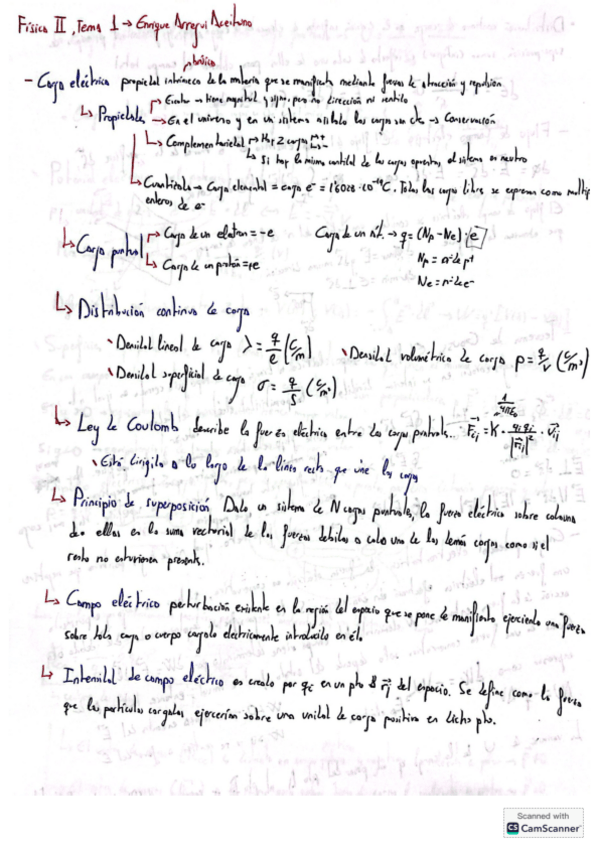 Física II, Tema 1 → Enrique Arregui Aceituno
- Carga eléctrica propiedad intrínseca de la materia que se manifiesta mediante fuerzas de atracción y repulsión
↳ Propiedades → Escalar → tiene magnitud y signo, pero no dirección ni sentido
→ En el universo y en un sistema aislado las cargas son cte → Conservación
↳ Complementariedad → Hay 2 cargas
↳ Si hay la misma cantidad de las cargas opuestas, el sistema es neutro
↳ Cuantizada → Carga elemental = carga e⁻ = 1'6028·10⁻¹⁹C. Todas las cargas libres se expresan como multip
enteros de e⁻
↳ Carga puntual → Carga de un electrón = -e Carga de un át. → q = (Np - Ne)·e
↳ Carga de un protón = +e Np = nº de p⁺
Ne = nº de e⁻
↳ Distribución continua de carga
· Densidad lineal de carga λ = q/e (C/m) · Densidad volumétrica de carga ρ = q/v (C/m³)
· Densidad superficial de carga σ = q/S (C/m²)
1/4πε₀
↳ Ley de Coulomb describe la fuerza eléctrica entre dos cargas puntuales. F⃗ij = K · qi qj/|r⃗ij|² · u⃗ij
· Está dirigida a lo largo de la línea recta que une las cargas
↳ Principio de superposición Dado un sistema de N cargas puntuales, la fuerza eléctrica sobre cada una
de ellas es la suma vectorial de las fuerzas debidas a cada una de las demás cargas como si el
resto no estuviesen presentes.
↳ Campo eléctrico perturbación existente en la región del espacio que se pone de manifiesto ejerciendo una fuerza
sobre toda carga o cuerpo cargado eléctricamente introducido en él.
↳ Intensidad de campo eléctrico es creado por qi en un pto B r⃗j del espacio. Se define como la fuerza
que las partículas cargadas ejercerían sobre una unidad de carga positiva en dicho pto.
Scanned with
CS CamScanner